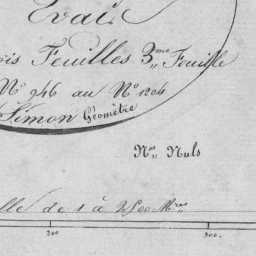 is Feuilles 3.me Feuille
N.º 946 au N.º 1204
Simon Géomètre
N.os Nuls
lle de 1 à 2500 M.res
200 300